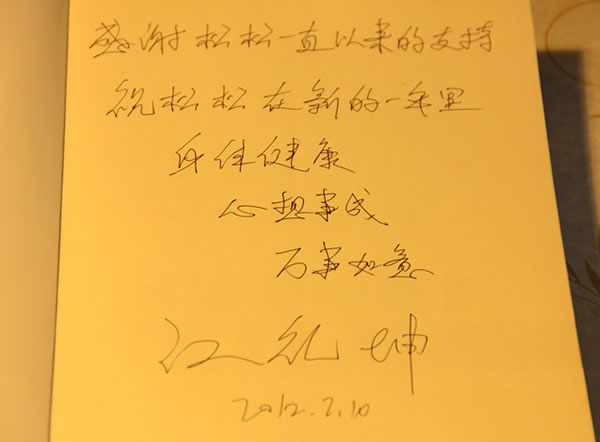 感谢松松一直以来的支持
祝松松在新的一年里
身体健康
心想事成
万事如意
江礼坤
2012.2.10